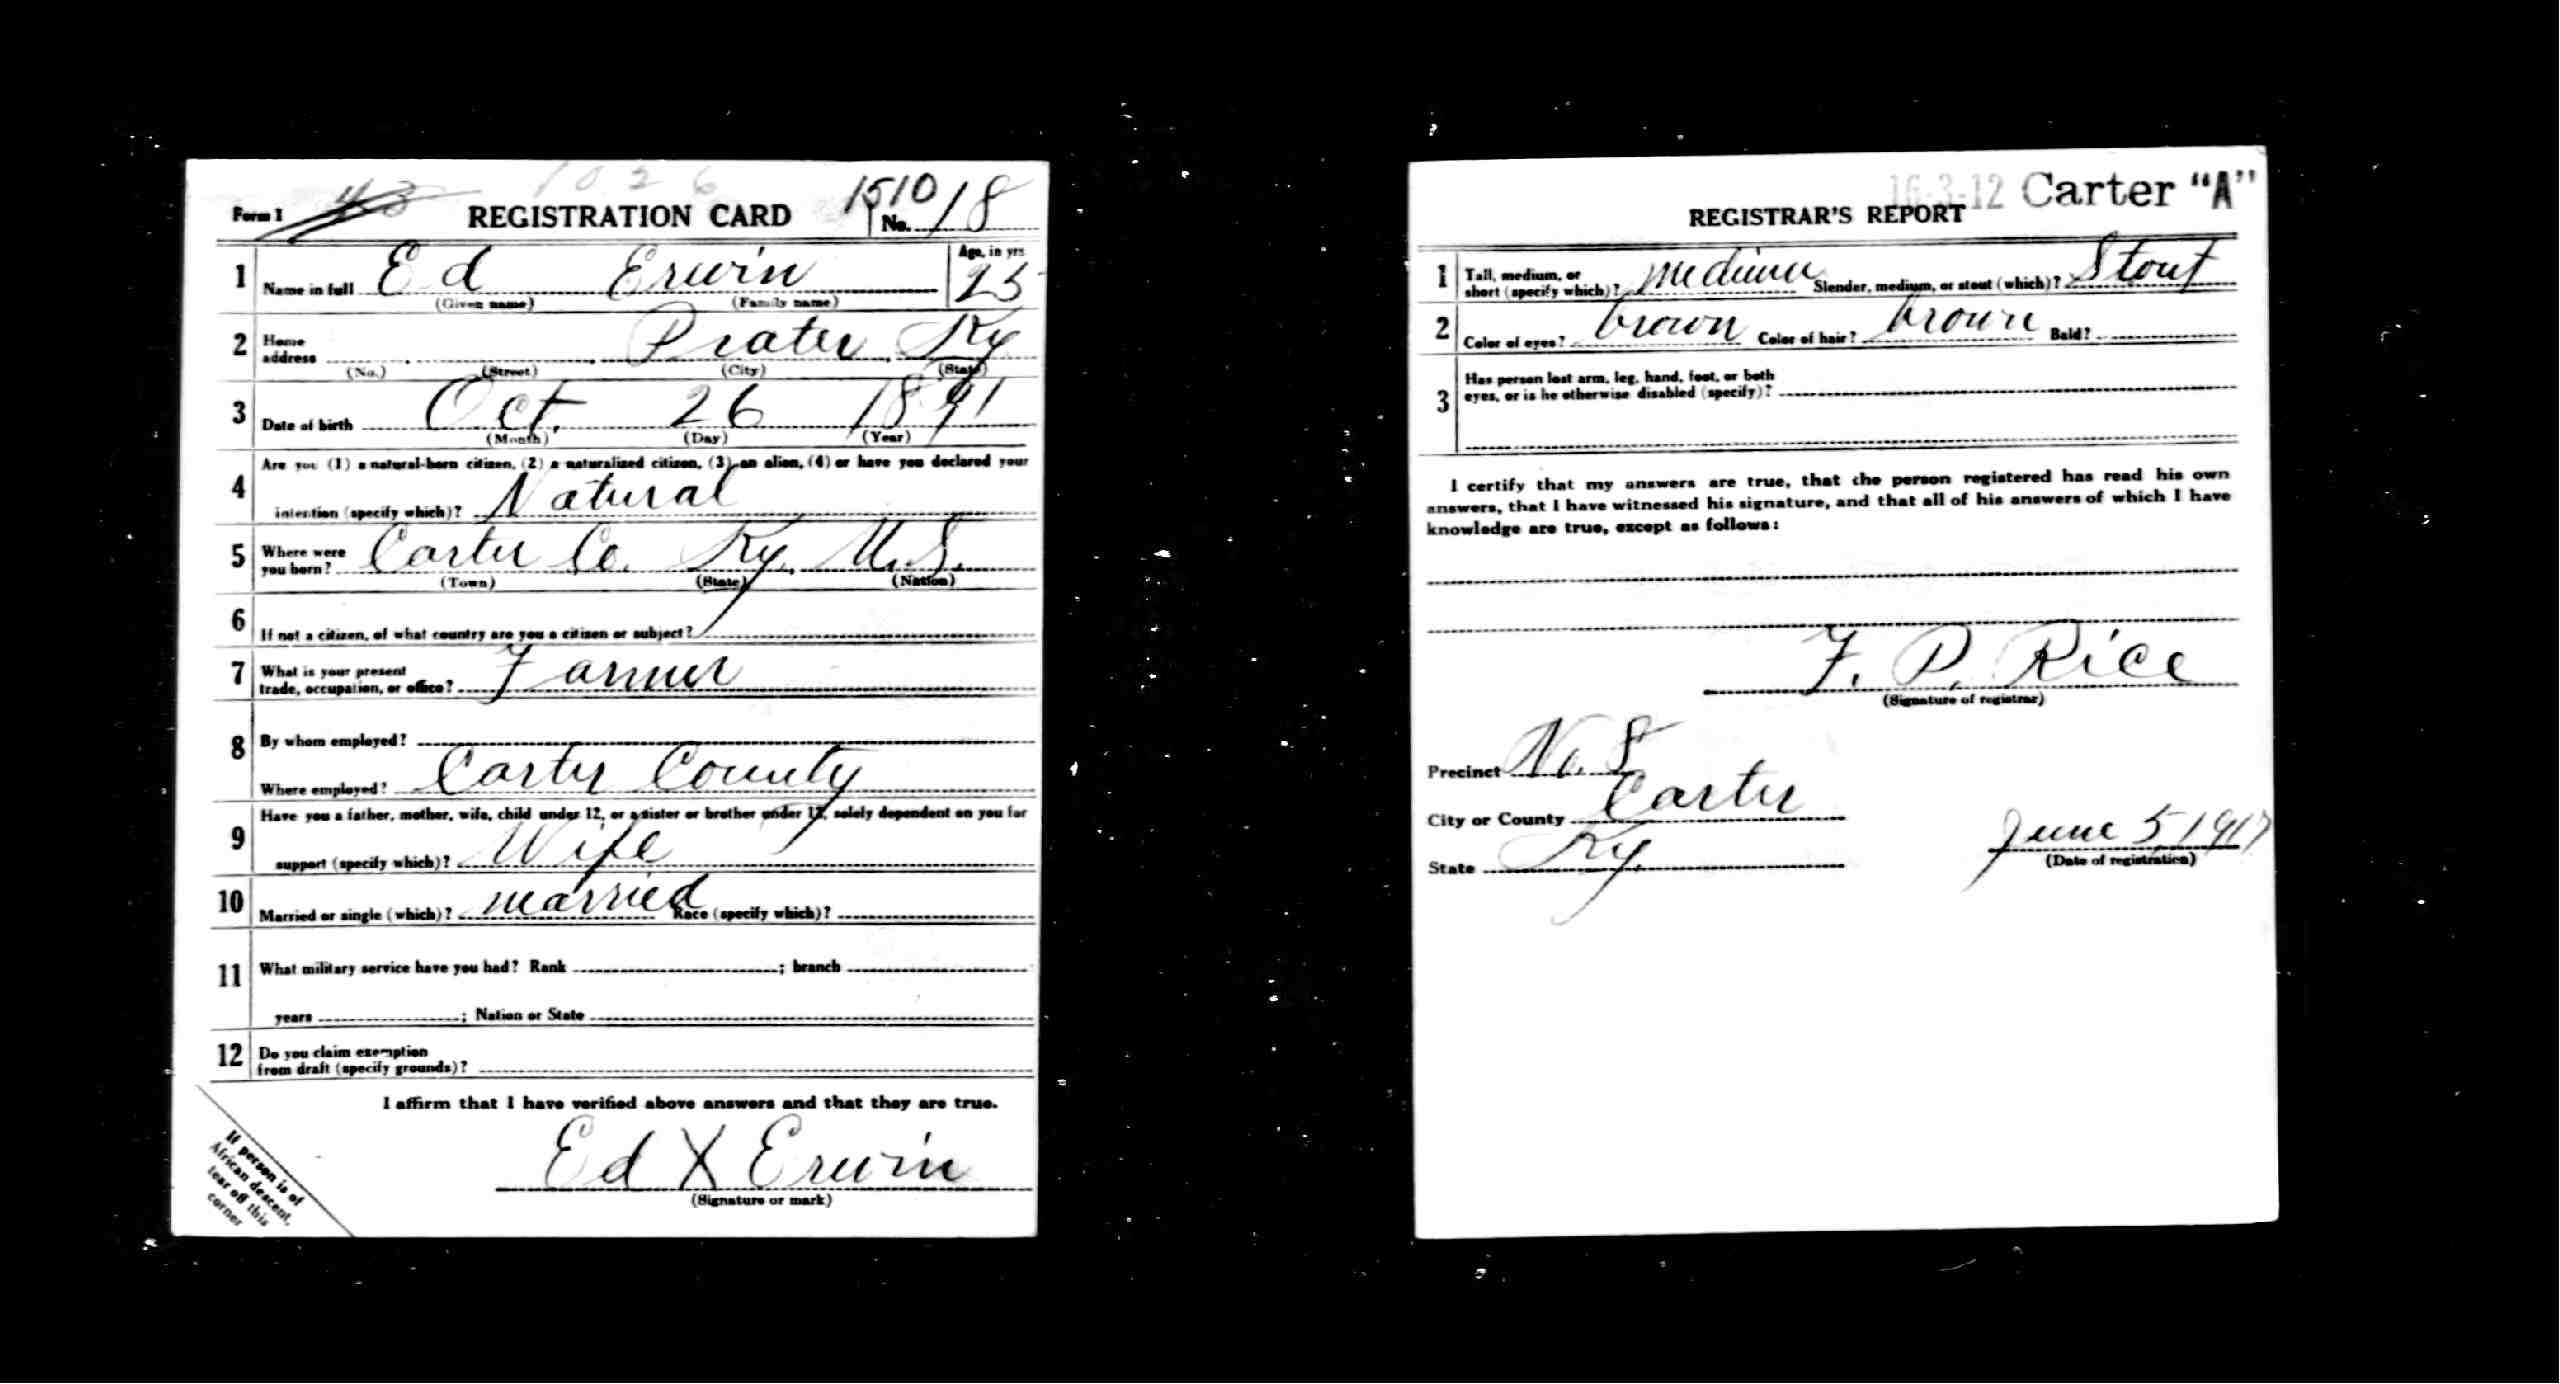 1026
Form 1 43 REGISTRATION CARD 1510 No. 18
1 Name in full Ed Erwin Age, in yrs 25
(Given name) (Family name)
2 Home address Prater Ky
(No.) (Street) (City) (State)
3 Date of birth Oct. 26 1891
(Month) (Day) (Year)
4 Are you (1) a natural-born citizen, (2) a naturalized citizen, (3) an alien, (4) or have you declared your
intention (specify which)? Natural
5 Where were you born? Carter Co. Ky. U.S.
(Town) (State) (Nation)
6 If not a citizen, of what country are you a citizen or subject?
7 What is your present
trade, occupation, or office? Farmer
8 By whom employed?
Where employed? Carter County
9 Have you a father, mother, wife, child under 12, or a sister or brother under 12, solely dependent on you for
support (specify which)? Wife
10 Married or single (which)? married Race (specify which)?
11 What military service have you had? Rank ; branch
years ; Nation or State
12 Do you claim exemption
from draft (specify grounds)?
I affirm that I have verified above answers and that they are true.
Ed X Erwin
(Signature or mark)
If person is of
African descent,
tear off this
corner
16-3-12 Carter "A"
REGISTRAR'S REPORT
1 Tall, medium, or
short (specify which)? medium Slender, medium, or stout (which)? Stout
2 Color of eyes? brown Color of hair? brown Bald?
3 Has person lost arm, leg, hand, foot, or both
eyes, or is he otherwise disabled (specify)?
I certify that my answers are true, that the person registered has read his own
answers, that I have witnessed his signature, and that all of his answers of which I have
knowledge are true, except as follows:
F. P. Rice
(Signature of registrar)
Precinct No. 8
City or County Carter
State Ky. June 5 1917
(Date of registration)